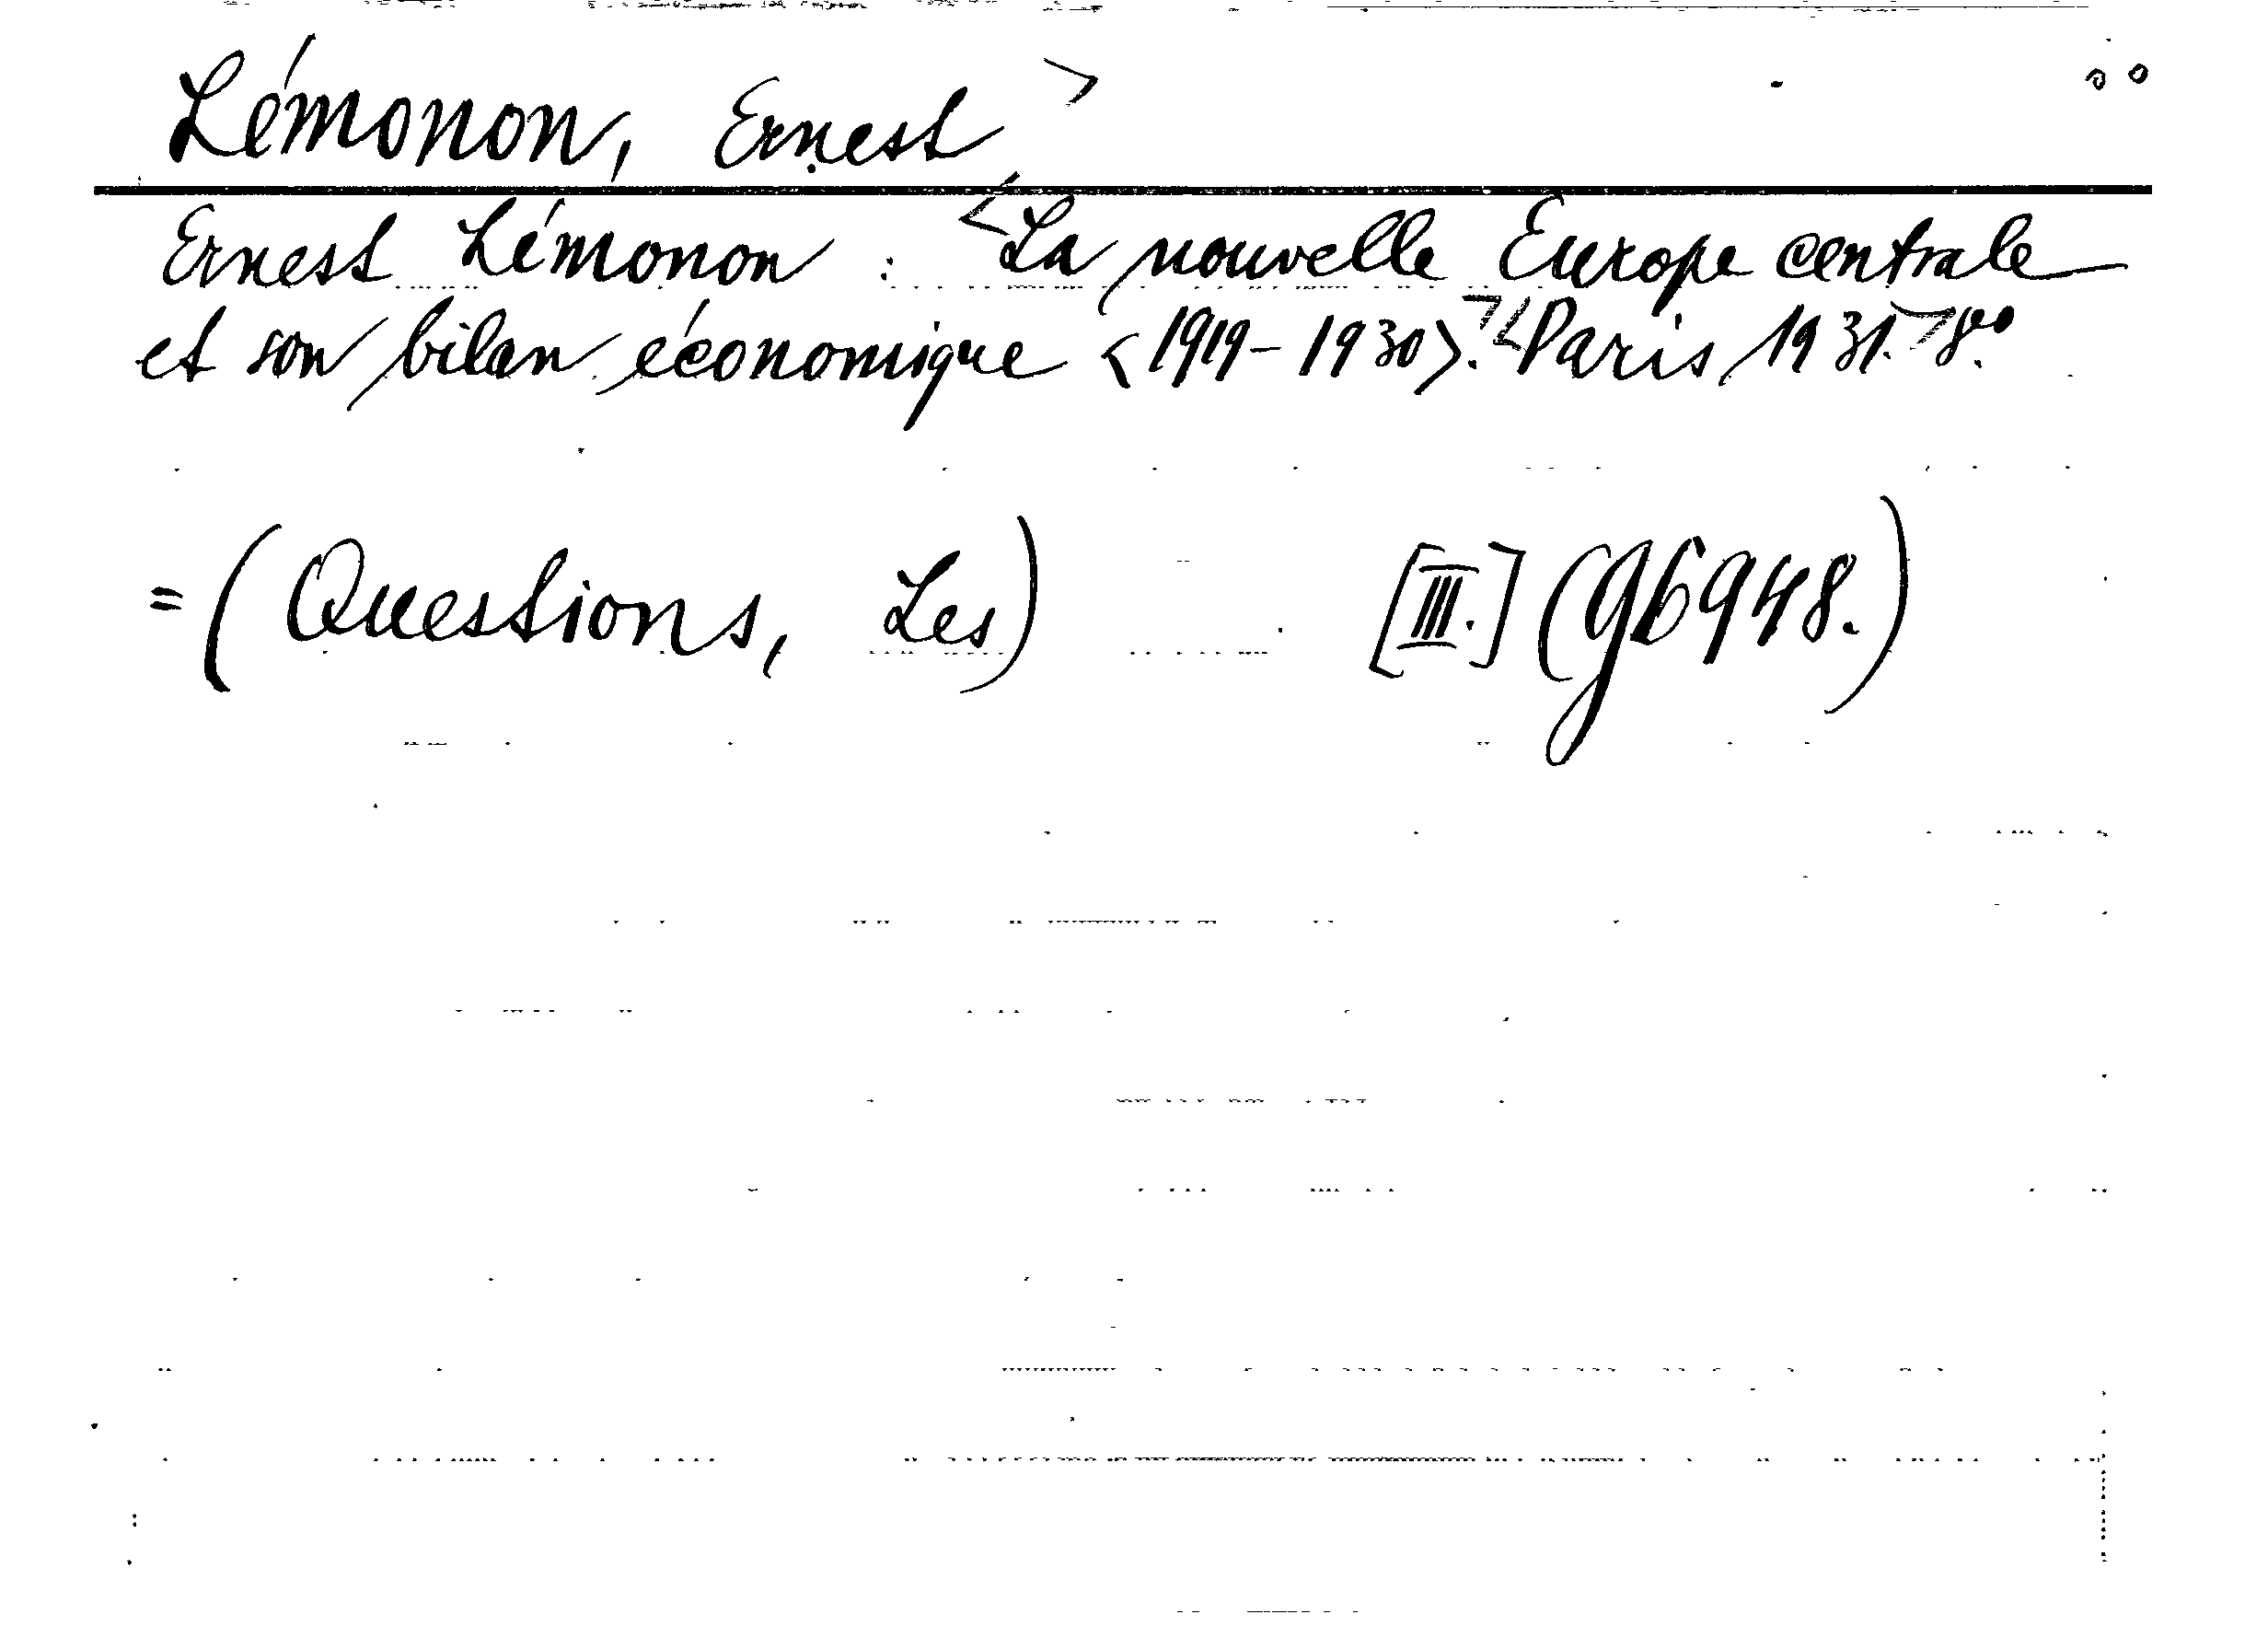 Lémonon, Ernest
Ernest Lémonon : La nouvelle Europe centrale
et son bilan économique <1919-1930>. Paris, 1931. 8.°
= (Questions, Les) [III.] (g6948.)